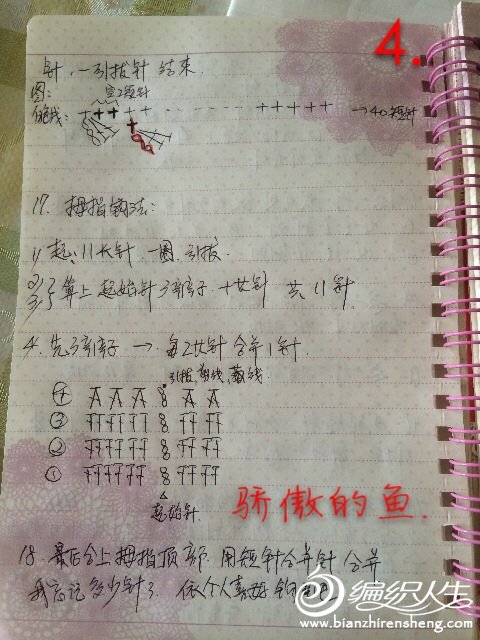 4.
针,一引拔针 结束.
图: 空2短针
+++++ - - - - - ++++++ → 40短针
17. 拇指钩法:
1) 起: 11长针 一圈. 引拔.
2)
3) 算上起始针3辫子 + 长针 共 11针
4. 先3辫子 → 每2长针合并1针.
引拔, 剪线, 藏线.
④
③
②
①
起始针
骄傲的鱼.
18. 最后合上拇指顶部. 用短针合并针 合并
我忘记多少针了. 依个人喜好 钩
编织人生
www.bianzhirensheng.com